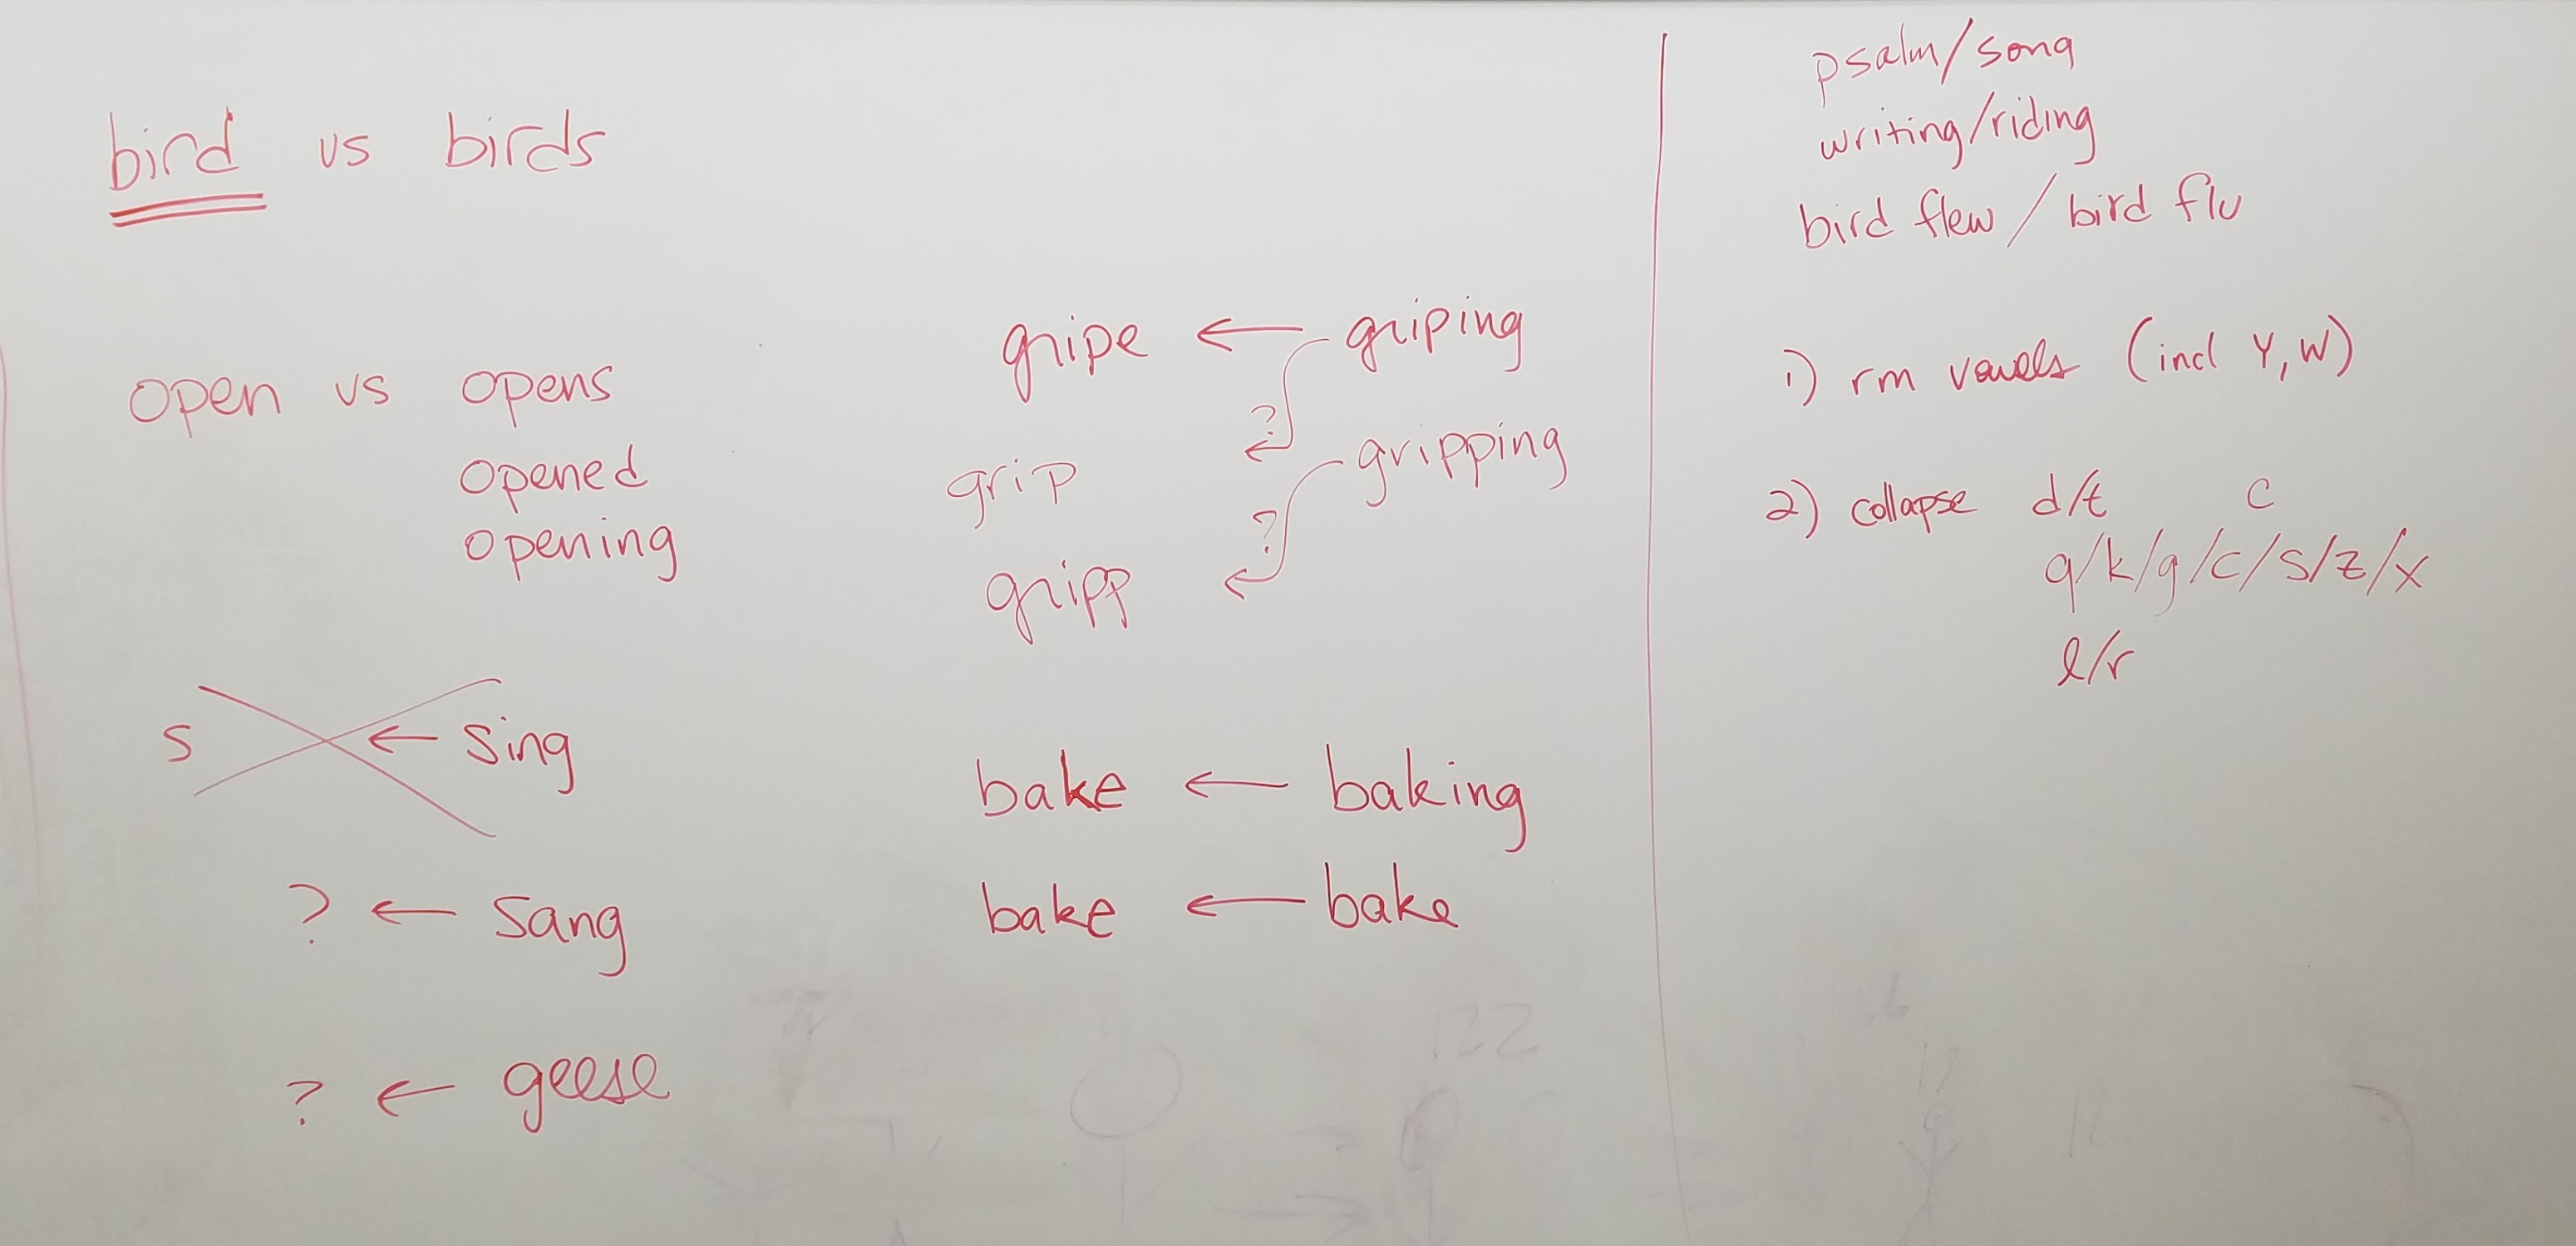 bird vs birds
open vs opens
opened
opening
s ← sing
? ← sang
? ← geese
gripe ← griping
?
grip
gripping
?
gripp
bake ← baking
bake ← bake
psalm/song
writing/riding
bird flew / bird flu
1) rm vowels (incl Y, W)
2) collapse d/t c
q/k/g/c/s/z/x
l/r
122